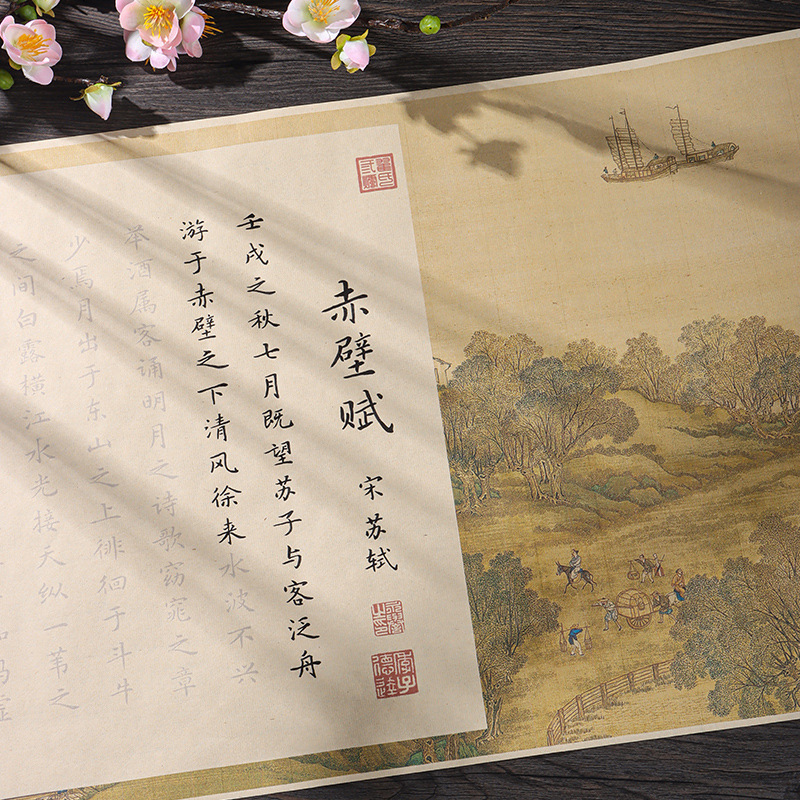 赤壁赋
宋苏轼
壬戌之秋七月既望苏子与客泛舟
游于赤壁之下清风徐来水波不兴
举酒属客诵明月之诗歌窈窕之章
少焉月出于东山之上徘徊于斗牛
之间白露横江水光接天纵一苇之
如冯虚